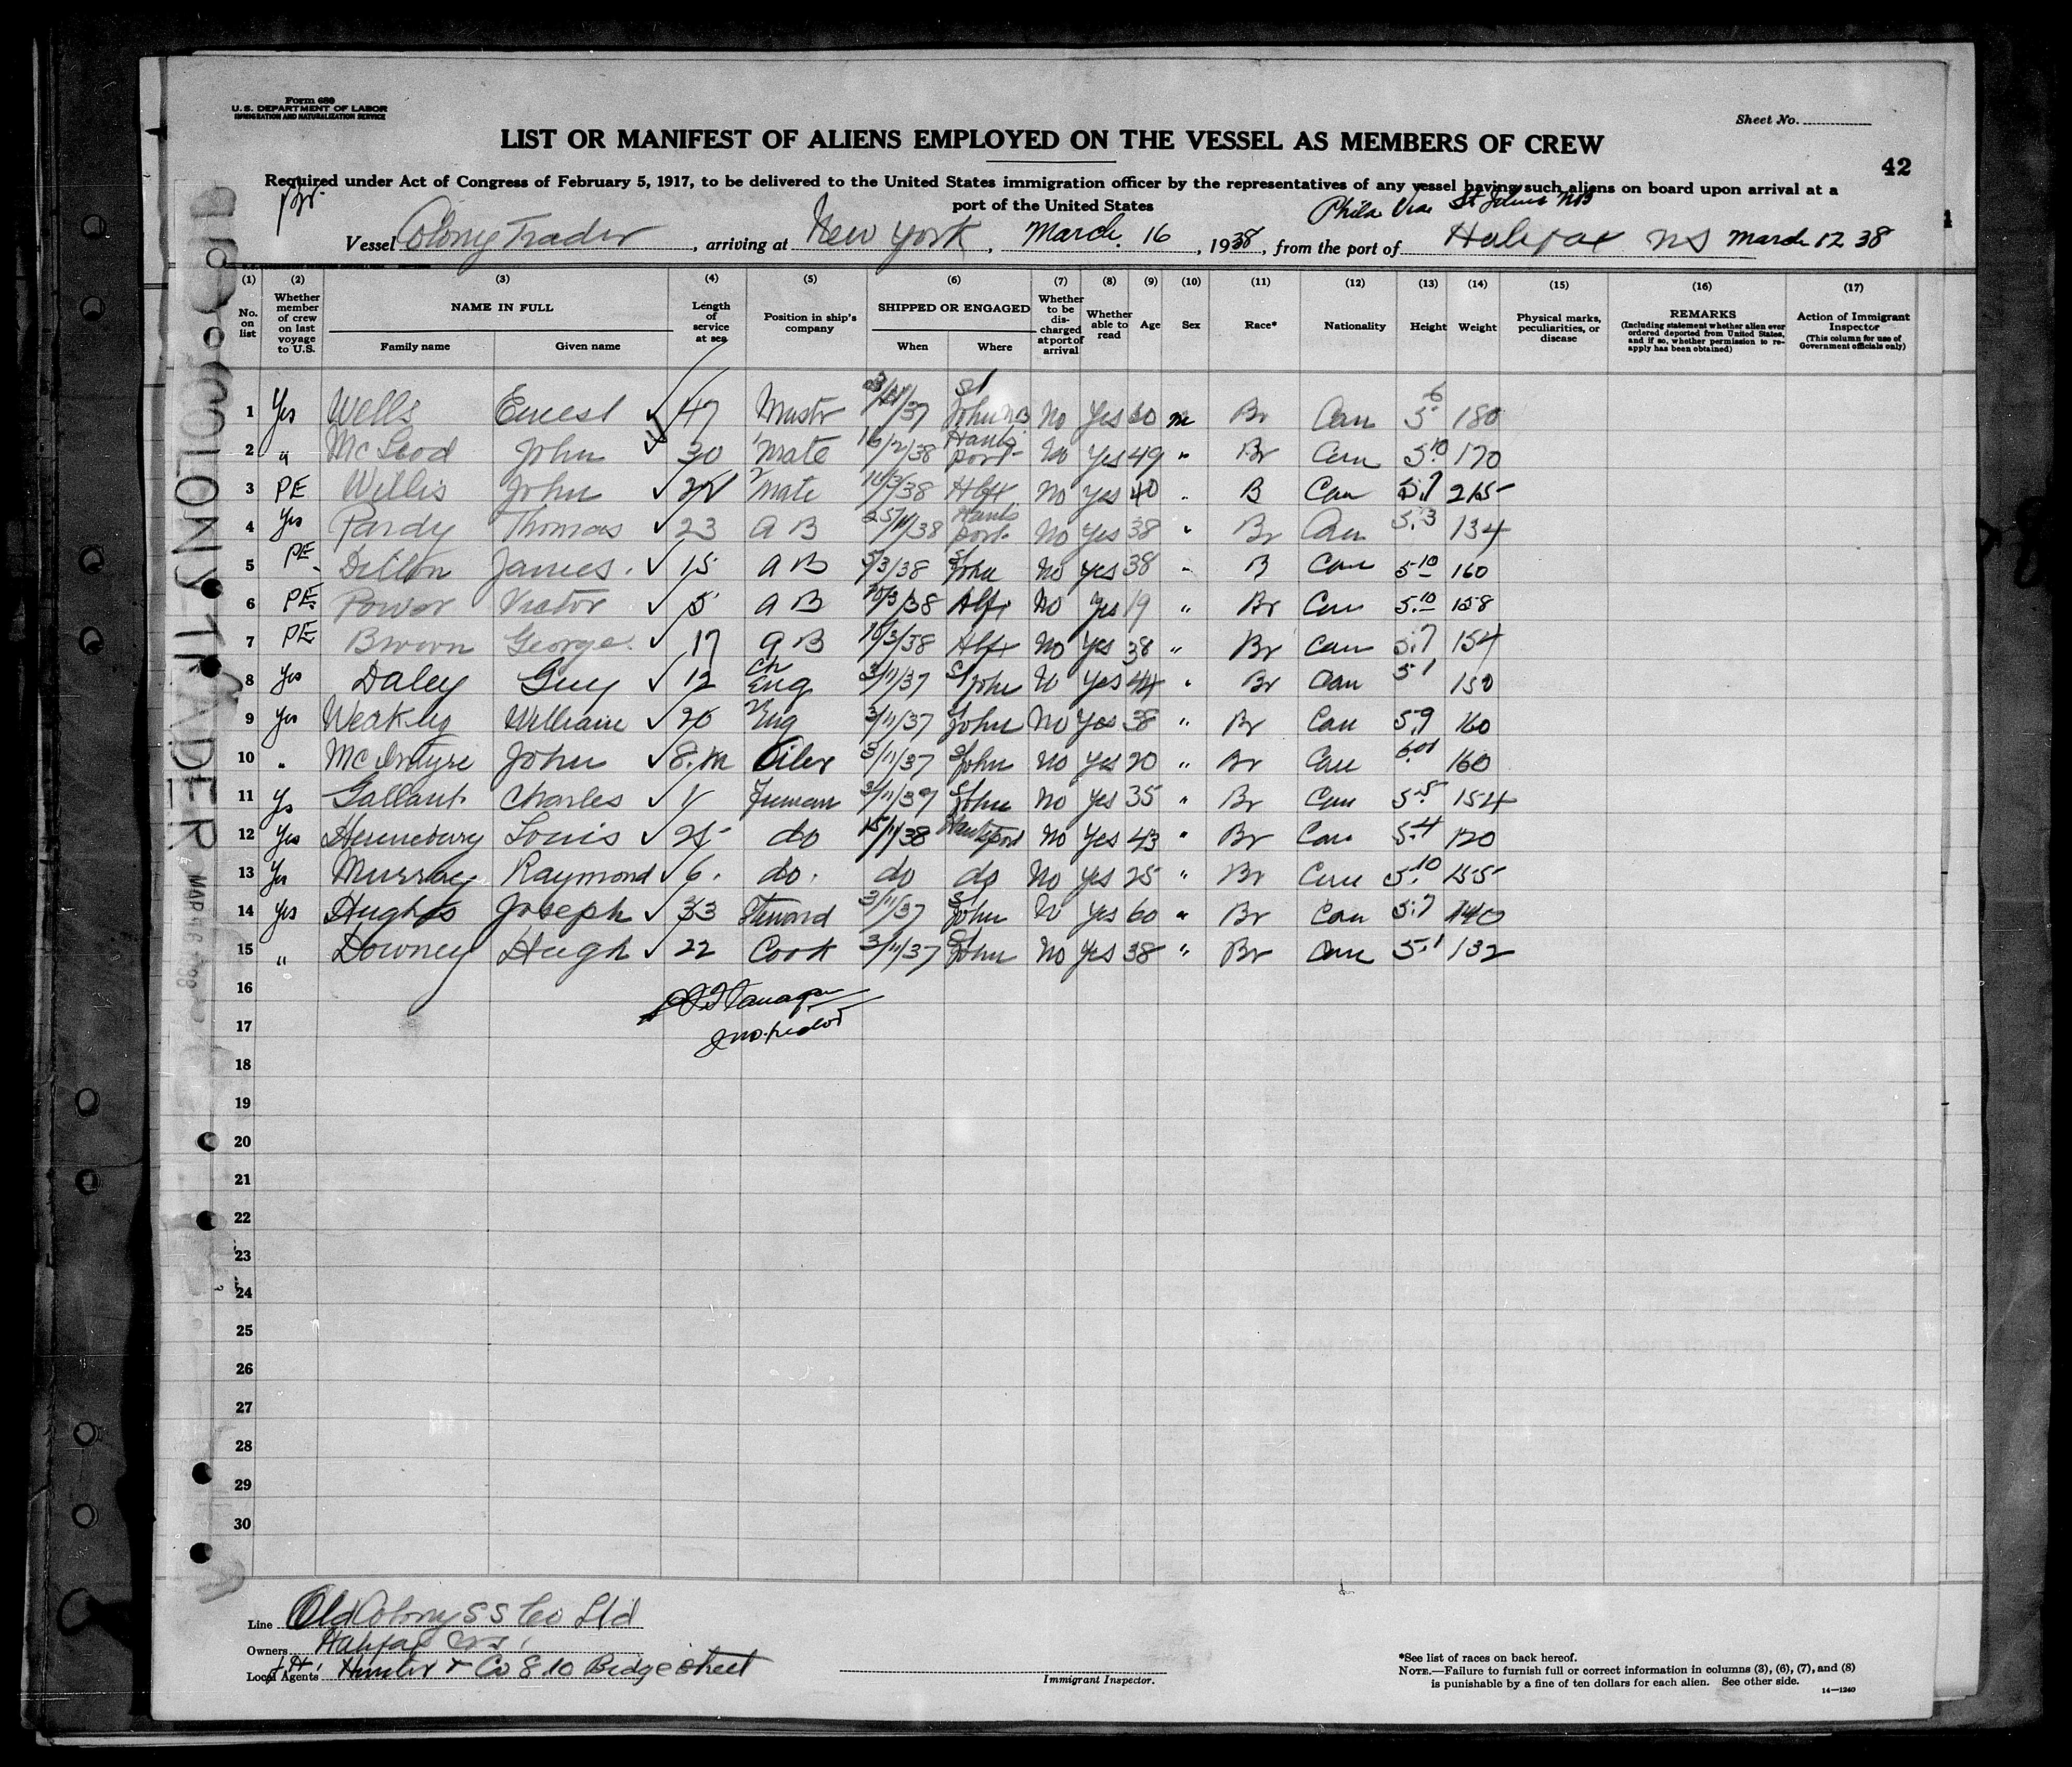 Form 680
U. S. DEPARTMENT OF LABOR
IMMIGRATION AND NATURALIZATION SERVICE
Sheet No.
LIST OR MANIFEST OF ALIENS EMPLOYED ON THE VESSEL AS MEMBERS OF CREW
42
Required under Act of Congress of February 5, 1917, to be delivered to the United States immigration officer by the representatives of any vessel having such aliens on board upon arrival at a
port of the United States
Br. Phila Via St Johns NB
Vessel Colony Trader, arriving at New York, March 16, 1938, from the port of Halifax NS March 12 38
(1) (2) (3) (4) (5) (6) (7) (8) (9) (10) (11) (12) (13) (14) (15) (16) (17)
No. on list Whether member of crew on last voyage to U.S. NAME IN FULL Family name Given name Length of service at sea Position in ship's company SHIPPED OR ENGAGED When Where Whether to be discharged at port of arrival Whether able to read Age Sex Race* Nationality Height Weight Physical marks, peculiarities, or disease REMARKS (Including statement whether alien ever ordered deported from United States, and if so, whether permission to re-apply has been obtained) Action of Immigrant Inspector (This column for use of Government officials only)
1 Yes Wells Ernest 47 Mastr /37 St John NB No Yes 60 m Br Can 5 6 180
2 " McLeod John 30 Mate 16/2/38 Hants port No Yes 49 " Br Can 5.10 170
3 PE Willis John 2 Mate 10/3/38 Hlfx No Yes 40 " B Can 5.7 215
4 Yes Pardy Thomas 23 A B 25/1/38 Hants port No Yes 38 " Br Can 5.3 134
5 PE Dillon James 15 A B 5/3/38 St John No Yes 38 " B Can 5 10 160
6 PE Power Victor 5 A B 10/3/38 Hlfx No Yes 19 " Br Can 5.10 158
7 PE Brown George 17 A B 10/3/38 Hlfx No Yes 38 " Br Can 5.7 154
8 Yes Daley Guy 12 Ch Eng 3/11/37 St John No Yes 44 " Br Can 5 1 150
9 Yes Weakley William 20 2 Eng 3/11/37 St John No Yes 38 " Br Can 5.9 160
10 " McIntyre John 8.m Oiler 3/11/37 St John No Yes 20 " Br Can 160
11 Ys Gallant Charles V Fireman 3/11/37 St John No Yes 35 " Br Can 5.5 154
12 Yes Hennebury Louis 25 do 15/1/38 Hantsport No Yes 43 " Br Can 5.4 120
13 Yes Murray Raymond 6. do. do do No Yes 25 " Br Can 5.10 155
14 Yes Hughes Joseph 33 Steward 3/11/37 St John No Yes 60 " Br Can 5.7 140
15 " Downey Hugh 22 Cook 3/11/37 St John No Yes 38 " Br Can 5.1 132
16
17
18
19
20
21
22
23
24
25
26
27
28
29
30
COLONY TRADER
MAR 16 1938
Line Old Colony S S Co Ltd
Owners Halifax NS.
Local Agents J.H. Hunter & Co 8 10 Bridge street
Immigrant Inspector.
*See list of races on back hereof.
NOTE.—Failure to furnish full or correct information in columns (3), (6), (7), and (8)
is punishable by a fine of ten dollars for each alien. See other side.
14—1240